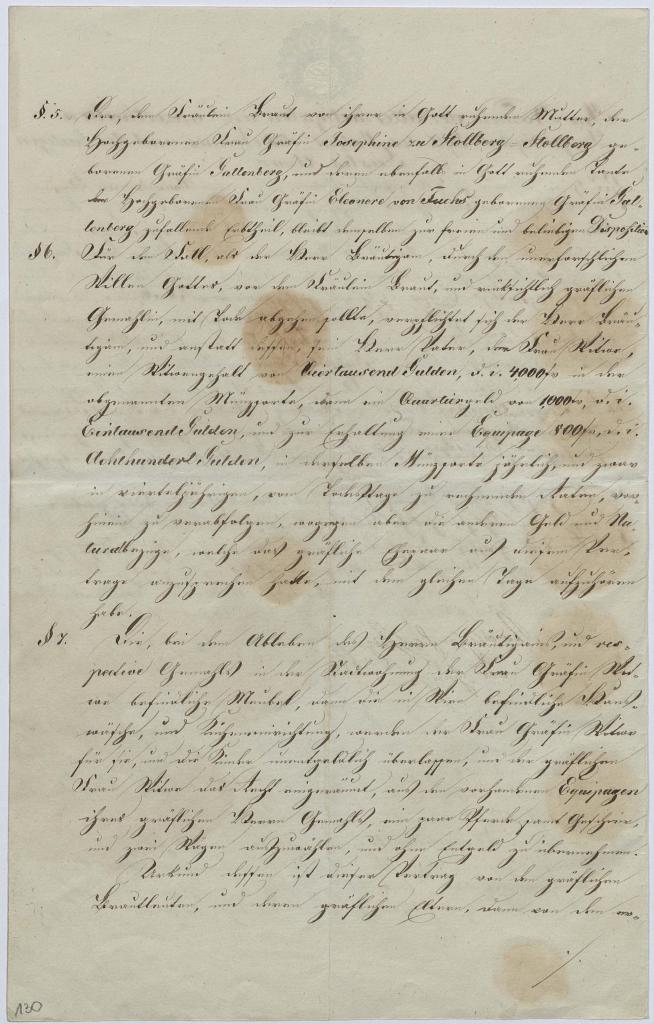 §. 5. Der, dem Fräulein Braut von ihrer in Gott ruhenden Mutter, der
Hochgeborenen Frau Gräfin Josephine zu Stollberg-Stollberg ge-
borenen Gräfin Gallenberg, und deren ebenfalls in Gott ruhenden Tante
der Hochgeborenen Frau Gräfin Eleonore von Fuchs geborenen Gräfin Gal-
lenberg zufallende Erbtheil, bleibt demselben zur freien und beliebigen Disposition
§ 6. Für den Fall, als der Herr Bräutigam, durch den unerforschlichen
Willen Gottes, vor dem Fräulein Braut, und rücksichtlich gräflichen
Gemahlin, mit Tode abgehen sollte, verpflichtet sich der Herr Bräu-
tigam, und anstatt dessen, sein Herr Vater, der Frau Witwe,
einen Witwengehalt von Viertausend Gulden, d. i. 4,000 fr in der
obgenannten Münzsorte, dann ein Quartiergeld von 1,000 fr, d. i.
Eintausend Gulden, und zur Erhaltung einer Equipage 800 fr, d. i.
Achthundert Gulden, in derselben Münzsorte jährlich, und zwar
in vierteljährigen, vom Todestage zu rechnenden Raten, vor-
hinein zu verabfolgen, wogegen aber die anderen Geld und Na-
turalbezüge, welche das gräfliche Ehepaar aus diesem Ver-
trage anzusprechen hatte, mit dem gleichen Tage aufzuhören
habe.
§ 7. Die, bei dem Ableben des Herrn Bräutigams, und res-
pective Gemahls in der Stadtwohnung der Frau Gräfin Wit-
we befindliche Meubel, dann die in Wien befindliche Haus-
wäsche, und Kücheneinrichtung, werden der Frau Gräfin Witwe
für sie, und die Kinder unentgeldlich überlassen, und der gräflichen
Frau Witwe das Recht eingeräumt, aus den vorhandenen Equipagen
ihres gräflichen Herrn Gemahls, ein paar Pferde samt Geschirr,
und zwei Wagen auszuwählen, und ohne Entgeld zu übernehmen.
Urkund dessen ist dieser Vertrag von den gräflichen
Brautleuten, und deren gräflichen Ältern, dann von den er-
./.
130